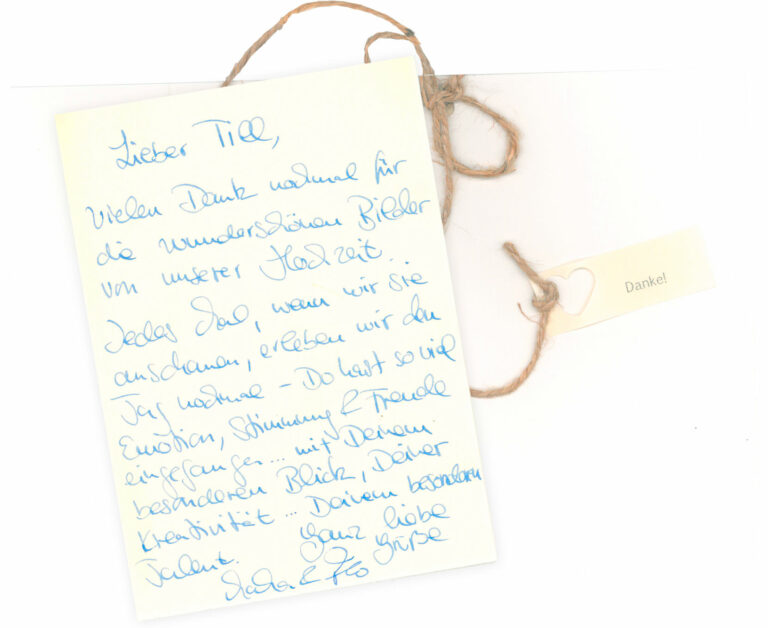 Lieber Till,
Vielen Dank nochmal für
die wunderschönen Bilder
von unserer Hochzeit.
Jedes Mal, wenn wir sie
anschauen, erleben wir den
Tag nochmal – Du hast so viel
Emotion, Stimmung & Freude
eingefangen... mit Deinem
besonderen Blick, Deiner
Kreativität... Deinem besonderen
Talent. Ganz liebe
Grüße
& Flo
Danke!